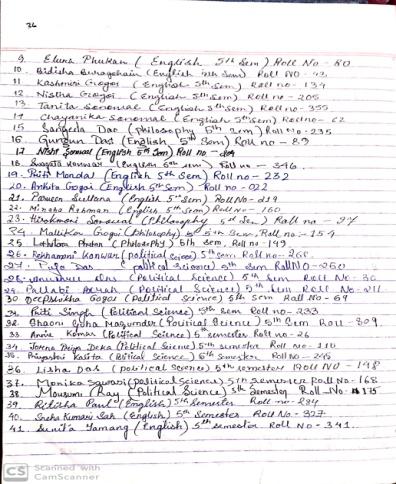 26
9. Eluna Phukan (English 5th Sem) Roll No - 80
10. Bidisha Buragohain (English 5th Sem) Roll NO - 43
11 Kashmiri Gogoi (English 5th Sem) Roll no - 134
12 Nistha Gogoi (English 5th Sem) Roll no - 205
13. Tanita Sonowal (English 5th Sem) Roll no - 355
14 Chayanika Sonowal (English 5th Sem) Roll no - 62
15 Sangeeta Das (philosophy 5th Sem) Roll no - 235
16 Gungun Das (English 5th Sem) Roll no - 89
17 Nishi Sonowal (English 5th Sem) Roll no -
18 Konwar (English 5th sem) Roll no - 346.
19. Priti Mondal (English 5th Sem) Roll no - 232
20. Ankita Gogoi (English 5th Sem) Roll no - 022
21. Parveen Sultana (English 5th Sem) Roll No - 219
22. Minara Rahman (English 5th Sem) Roll no - 160
23. Hiramoni Sonowal (Philosophy) 5th Sem, Roll no - 97
24. Mallika Gogoi (Philosophy) 5th Sem, Roll no - 154
25. Phukan (Philosophy) 5th Sem, Roll no - 149
26. Konwar (political science) 5th Sem Roll no - 268
27. Puja Das (political science) 5th Sem Roll NO - 260
28. Das (Political Science) 5th Sem Roll No - 30
29. Pallabi (Political Science) 5th Sem Roll No - 211
30 Deepshikha Gogoi (Political Science) 5th Sem Roll No - 69
31. Priti Singh (Political Science) 5th Sem Roll no - 233
32. Bhaoni Majumder (Political Science) 5th Sem Roll - 309
33 Annie Konwar (Political Science) 5th semester Roll no - 26
34. Priya Deka (Political Science) 5th semester Roll no - 110
35. Priyashri Kalita (Political Science) 5th semester Roll no - 245
36. Lisha Das (political Science) 5th semester Roll NO - 148
37. Monika Sawasi (political Science) 5th semester Roll No - 168
38 Mousumi Ray (Political Science) 5th Semester Roll No - 175
39. Rishita Paul (English) 5th Semester Roll no - 284
40. Sneha Kumari Sah (English) 5th Semester Roll No - 327
41. Sunita Yamang (English) 5th semester Roll No - 341.
CS Scanned with
CamScanner